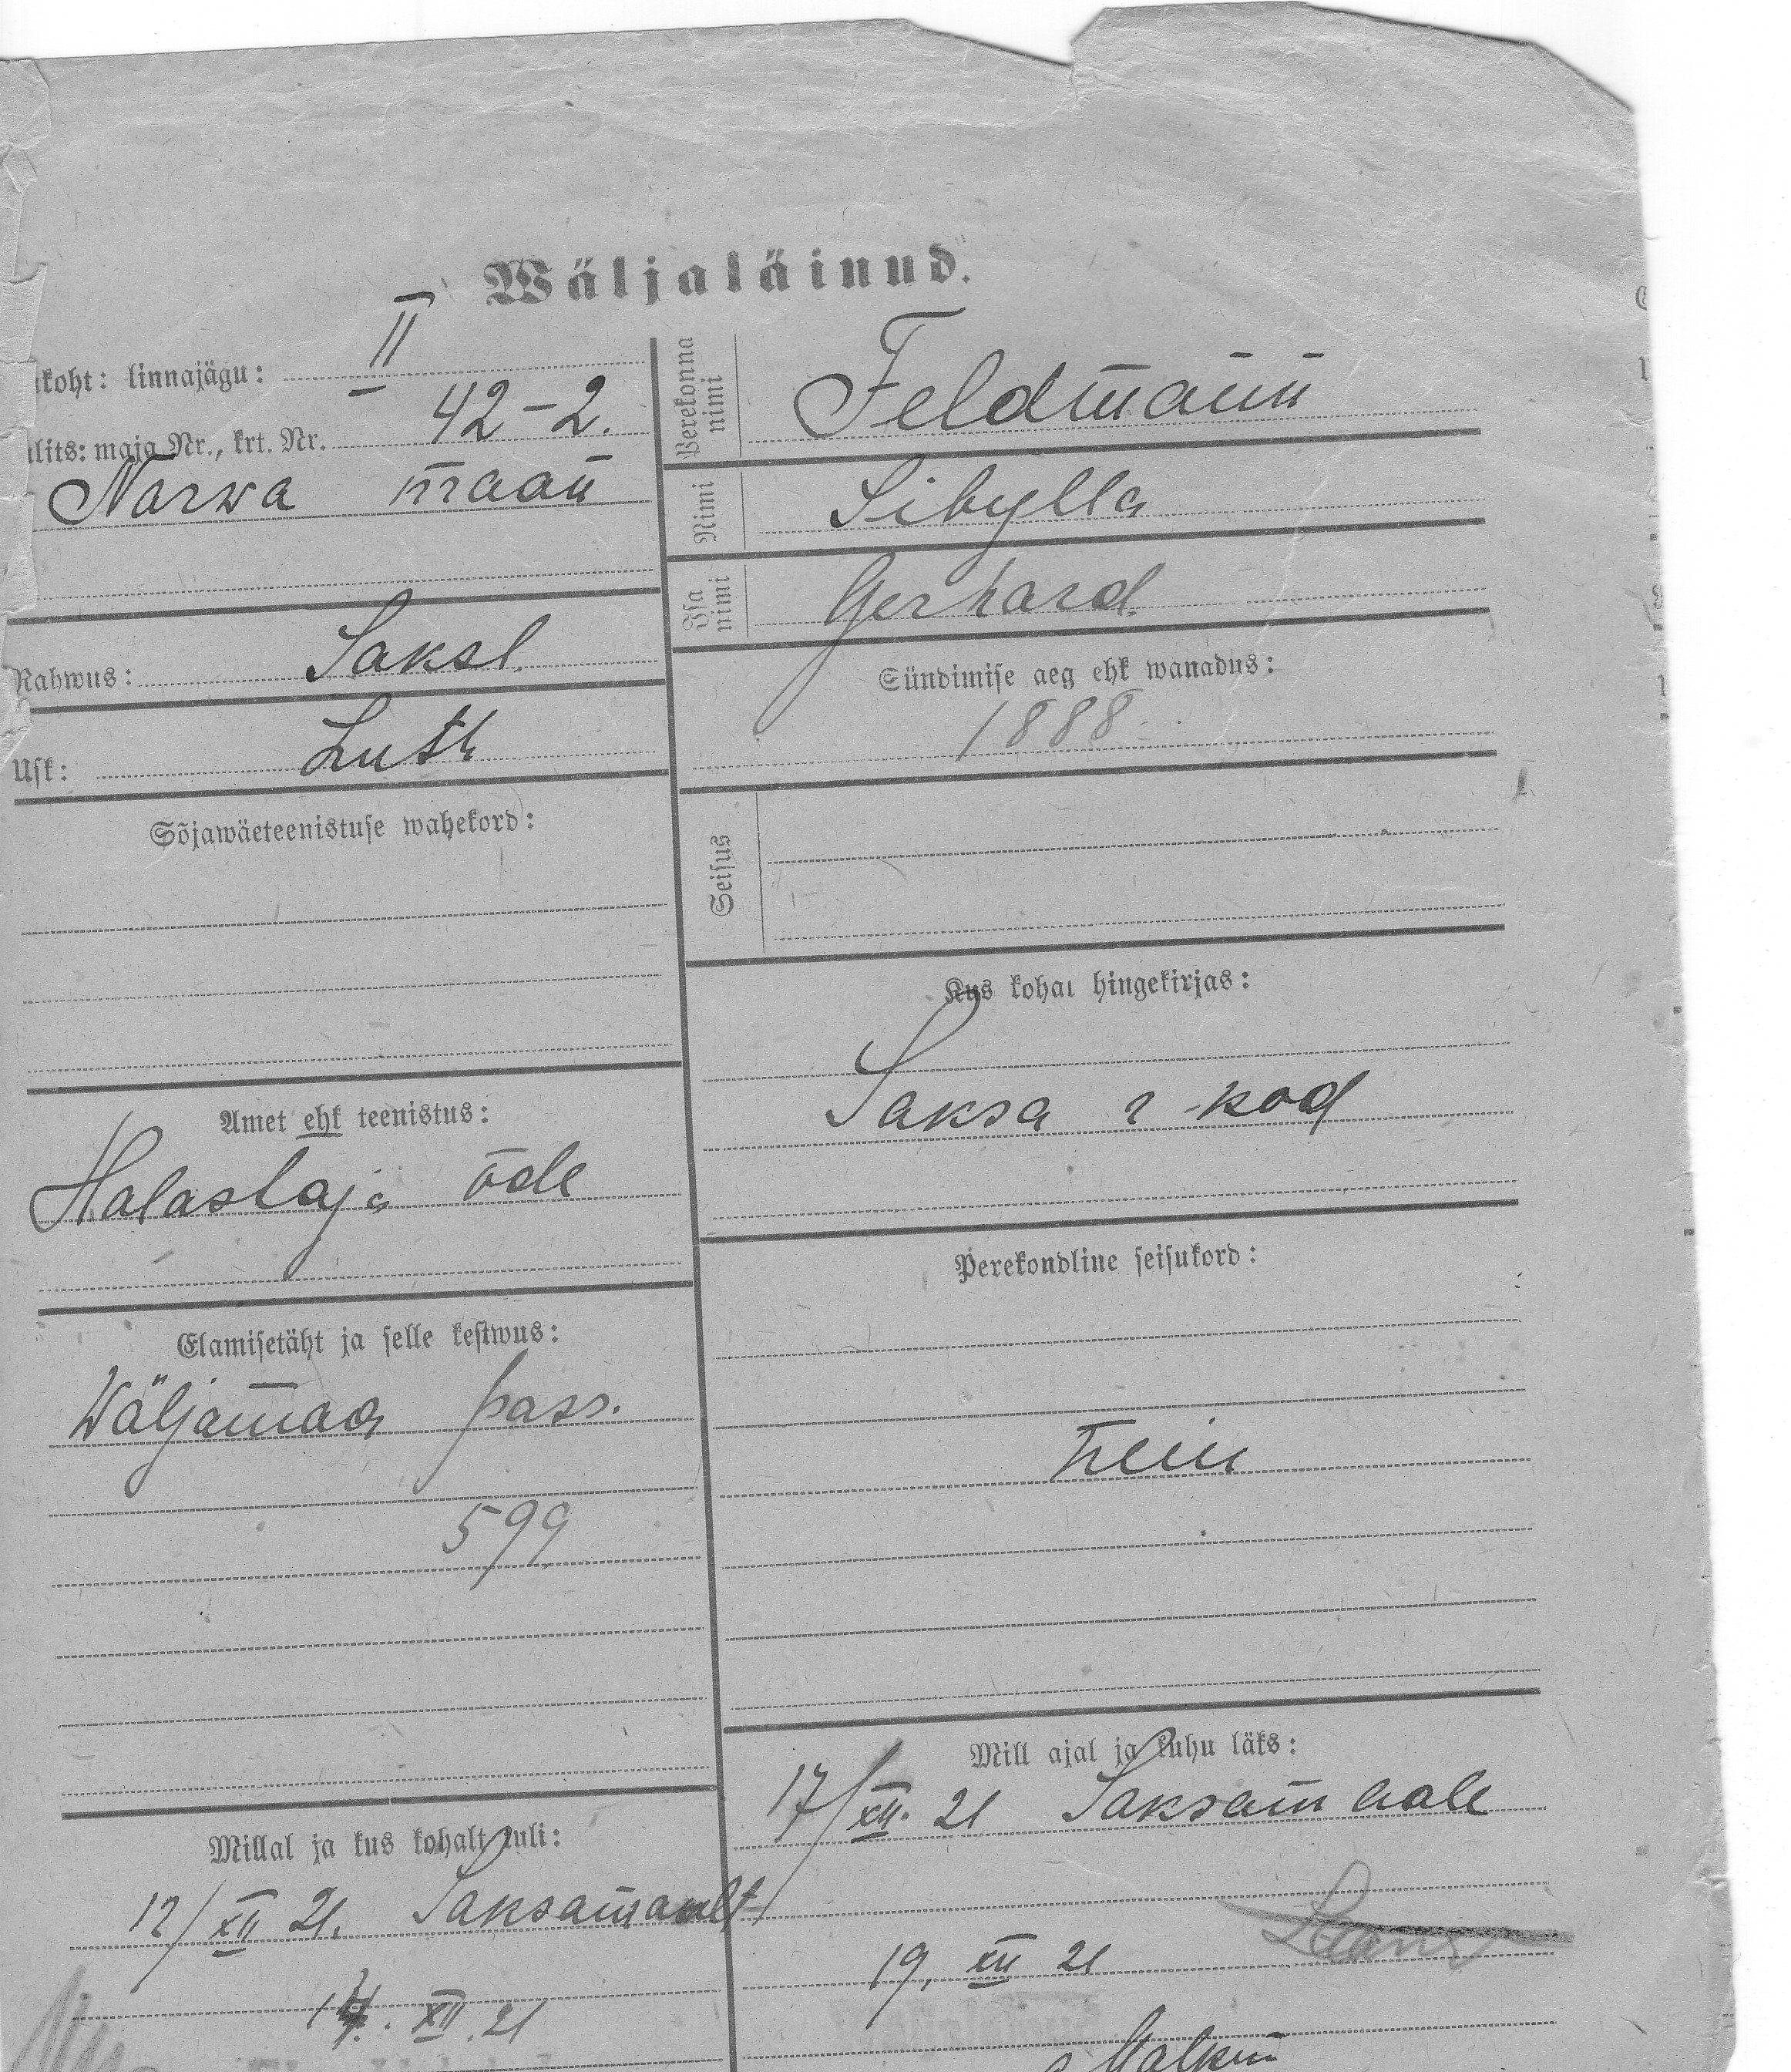 Wäljaläinud.
koht: linnajägu: II
lits: maja Nr., krt. Nr. 42-2.
Narwa maan
Rahwus: Saksl.
Usk: Luth
Sõjawäeteenistuse wahekord:
Amet ehk teenistus:
Halastaja õde
Elamisetäht ja selle kestwus:
Wäljamaa pass.
599
Millal ja kus kohalt tuli:
12/XII 21. Saksamaalt
14. XII. 21
Perekonna nimi
Feldmann
Nimi
Sibylla
Isa nimi
Gerhard
Sündimise aeg ehk wanadus:
1888
Seisus
Kus kohal hingekirjas:
Saksa r-kod
Perekondline seisukord:
Mill ajal ja kuhu läks:
17/XII. 21 Saksamaale
19, XII 21